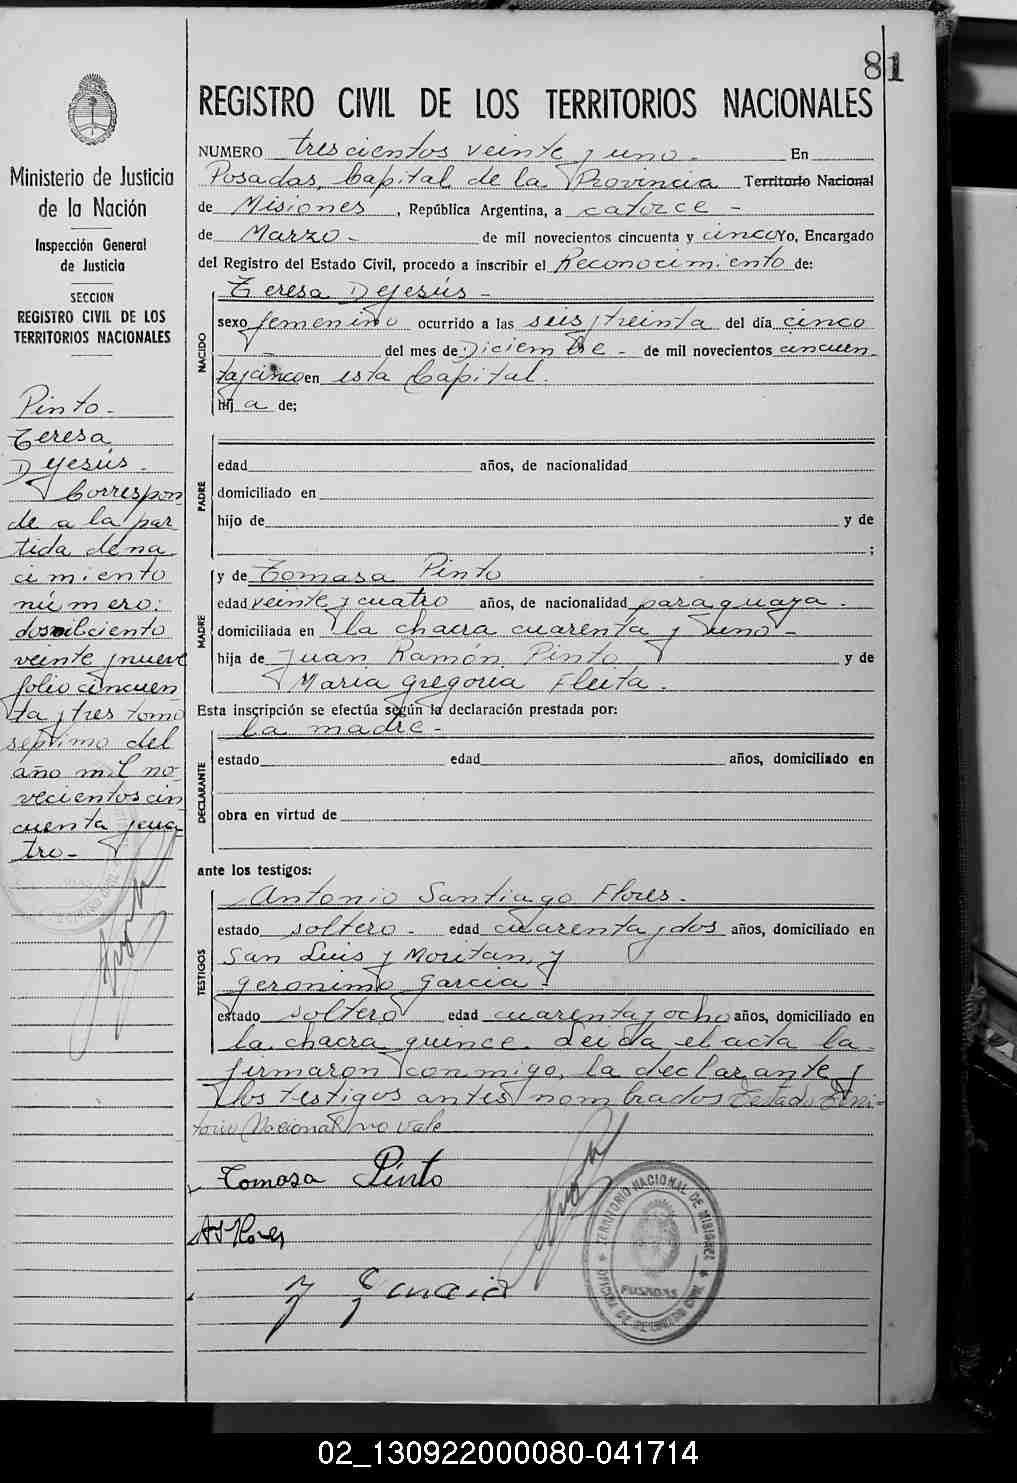 81
REGISTRO CIVIL DE LOS TERRITORIOS NACIONALES
NUMERO trescientos veinte y uno.- En
Posadas, Capital de la Provincia Territorio Nacional
de Misiones, República Argentina, a catorce -
de Marzo.- de mil novecientos cincuenta y cinco Yo, Encargado
del Registro del Estado Civil, procedo a inscribir el Reconocimiento de:
NACIDO
Teresa Dejesús -
sexo femenino ocurrido a las seis y treinta del día cinco
- del mes de Diciembre - de mil novecientos cincuen
ta y cinco en esta Capital.
hij a de;
PADRE
edad años, de nacionalidad
domiciliado en
hijo de y de
;
MADRE
y de Tomasa Pinto
edad veinte y cuatro años, de nacionalidad paraguaya.
domiciliada en la chacra cuarenta y uno -
hija de Juan Ramón Pinto y de
María Gregoria Fleita.
Esta inscripción se efectúa según la declaración prestada por:
DECLARANTE
La madre -
estado edad años, domiciliado en
obra en virtud de
ante los testigos:
TESTIGOS
Antonio Santiago Flores.
estado soltero - edad cuarenta y dos años, domiciliado en
San Luis y Moritan, y
Geronimo Garcia -
estado soltero edad cuarenta y ocho años, domiciliado en
la chacra quince. Leida el acta la
firmaron conmigo, la declarante y
los testigos antes nombrados Testado Terri-
torio Nacional no vale
Tomasa Pinto
ASFlores
J Garcia
TERRITORIO NACIONAL DE MISIONES
OFICINA DE REGISTRO CIVIL
POSADAS
Ministerio de Justicia
de la Nación
Inspección General
de Justicia
SECCION
REGISTRO CIVIL DE LOS
TERRITORIOS NACIONALES
Pinto -
Teresa
Dejesús -
Correspon
de a la par
tida de na
cimiento
número:
veinte y nueve
folio cincuen
ta y tres tomo
septimo del
año mil no-
vecientos cin
cuenta y cua
tro -
02_130922000080-041714